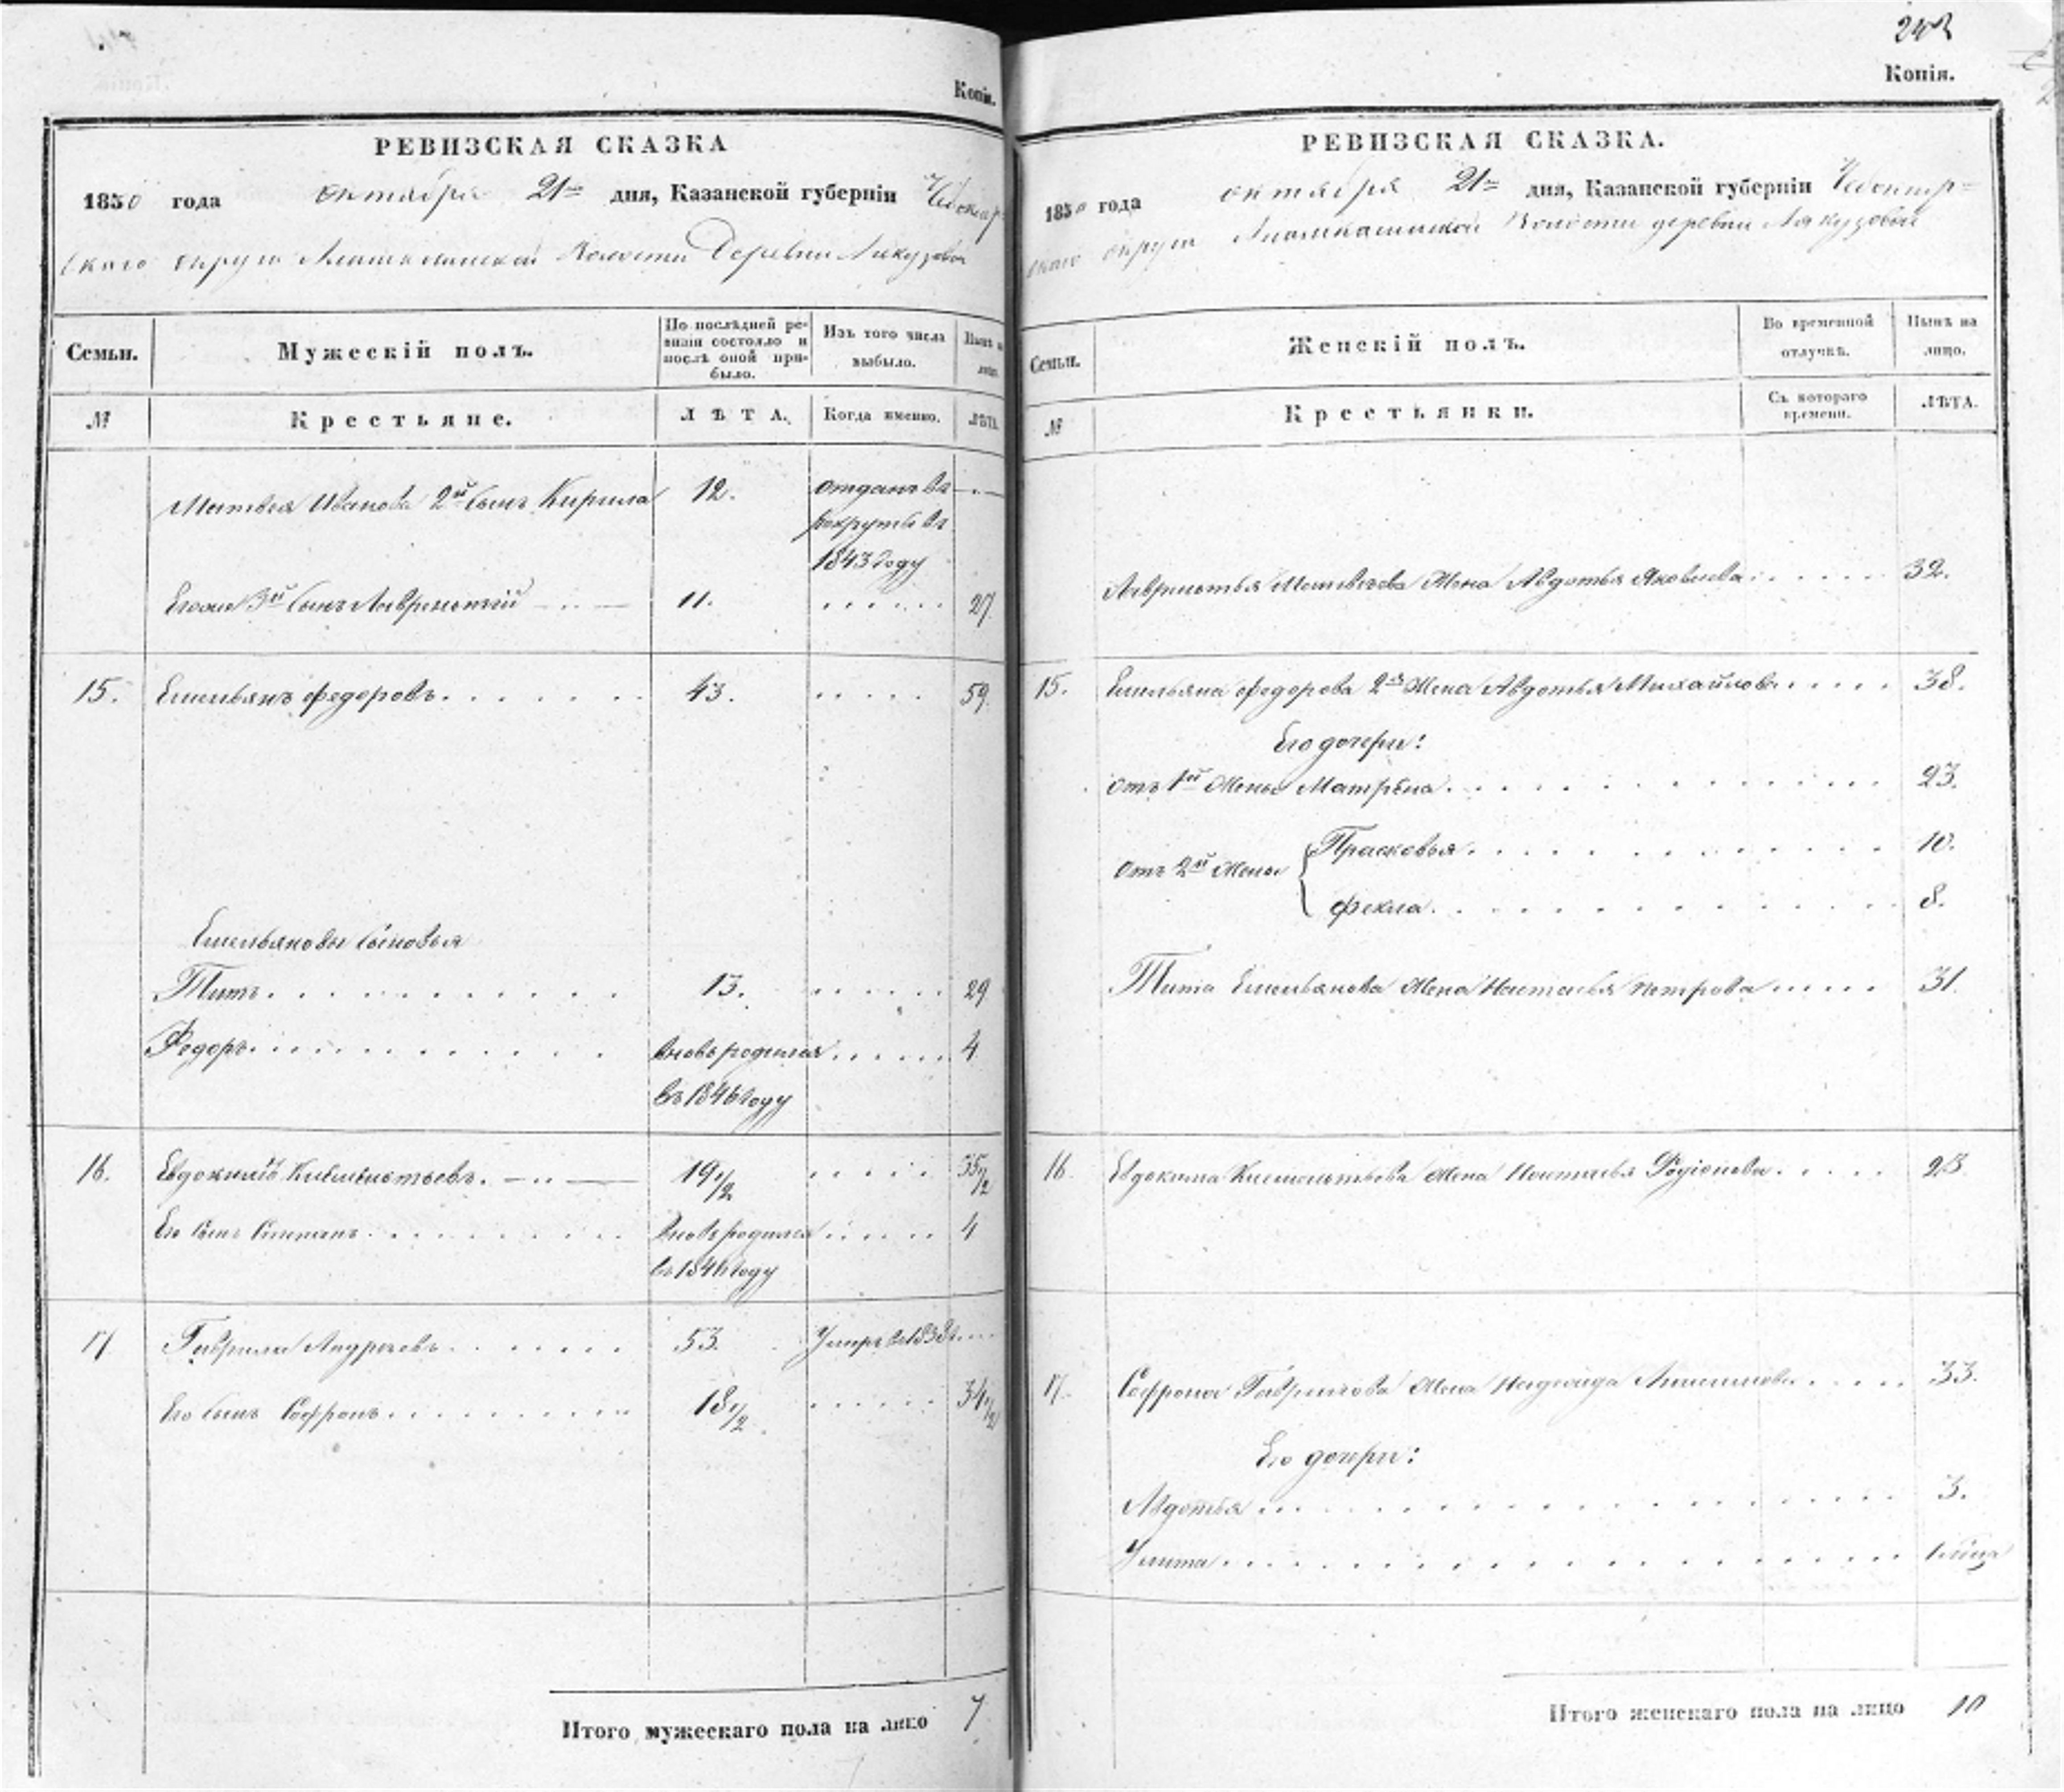 Копія.
РЕВИЗСКАЯ СКАЗКА
1850 года октября 21го дня, Казанской губерніи Чебоксар-
скаго округа Волости Деревни
Семьи.
Мужескій полъ.
По послѣдней ре-
визіи состояло и
послѣ оной при-
было.
Изъ того числа
выбыло.
Нынѣ на
лицо.
№
Крестьяне.
ЛѢТА.
Когда именно.
ЛѢТА.
Матвея Иванова 2й сынъ Кирила 12. отданъ въ
рекруты въ
1843 году
Егоже 3й сынъ Лаврентій 11. 27
15. Емельянъ Федоровъ 43. 59.
Емельяновы сыновья
Титъ 13. 29
Федоръ вновь родился 4
въ 1846 году
16. Евдокимъ Климентьевъ 19 1/2 35 1/2
Его сынъ Степанъ вновь родился 4
въ 1846 году
17 Гаврила Андреевъ 53. Умеръ въ 1838
Его сынъ Софронъ 18 1/2 34 1/2
Итого мужескаго пола на лицо 7
242
Копія.
РЕВИЗСКАЯ СКАЗКА.
1850 года октября 21го дня, Казанской губерніи Чебоксар-
скаго округа Волости деревни Лякузовой
Семьи.
Женскій полъ.
Во временной
отлучкѣ.
Нынѣ на
лицо.
№
Крестьянки.
Съ котораго
времени.
ЛѢТА.
Лаврентья Матвеева Жена Авдотья Яковлева 32.
15. Емельяна Федорова 2я Жена Авдотья Михайлова 38.
Его дочери:
Отъ 1й Жены Матрена 23.
Отъ 2й Жены Прасковья 10.
Фекла 8.
Тита Емельянова Жена Настасья Петрова 31.
16. Евдокима Климентьева Жена Настасья Родіонова 23
17. Софрона Гаврилова Жена 33.
Его дочери:
Авдотья 3.
Улита
Итого женскаго пола на лицо 10